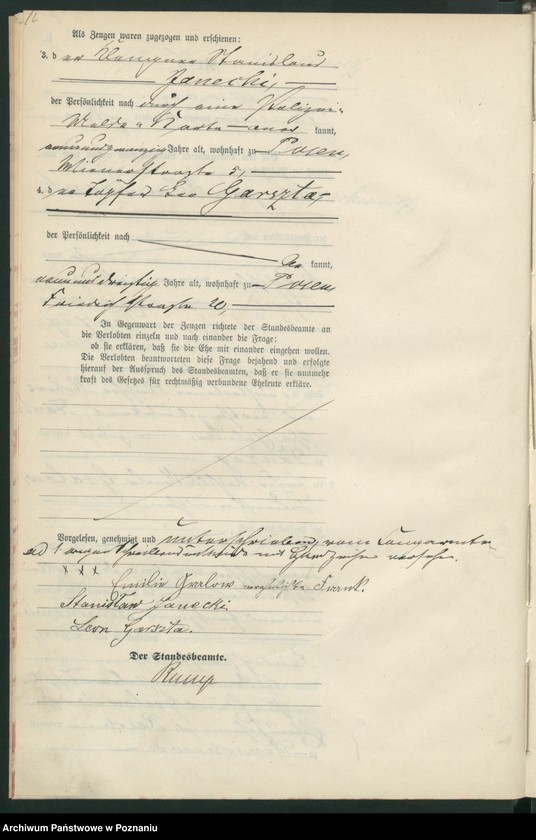 12
Als Zeugen waren zugezogen und erschienen:
3. der Klempner Stanislaus
Janecki,
der Persönlichkeit nach durch eine Polizei-
Melde-Karte aner kannt,
neunundzwanzig Jahre alt, wohnhaft zu Posen,
Wienerstraße 5,
4. der Töpfer Leo Garszta,
der Persönlichkeit nach
be kannt,
neununddreißig Jahre alt, wohnhaft zu Posen
Friedrichstraße 20,
In Gegenwart der Zeugen richtete der Standesbeamte an
die Verlobten einzeln und nach einander die Frage:
ob sie erklären, daß sie die Ehe mit einander eingehen wollen.
Die Verlobten beantworteten diese Frage bejahend und erfolgte
hierauf der Ausspruch des Standesbeamten, daß er sie nunmehr
kraft des Gesetzes für rechtmäßig verbundene Eheleute erkläre.
Vorgelesen, genehmigt und unterschrieben, vom
mit Handzeichen versehen.
x x x
Emilie Gralow Frank.
Stanisław Janecki
Leon Garszta.
Der Standesbeamte.
Rump
Archiwum Państwowe w Poznaniu